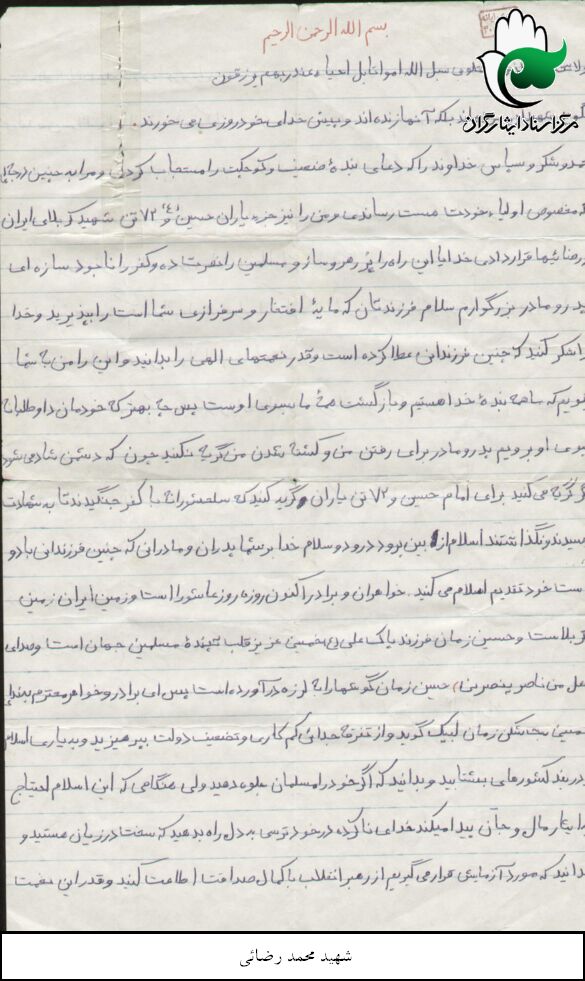 بسم الله الرحمن الرحیم
سبل الله امواتا بل احیاء عند ربهم یرزقون
مرکز اسناد ایثارگران
بلکه آنها زنده اند و پیش خدای خود روزی می خورند.
حمد و شکر و سپاس خداوند را که دعای بنده ضعیف و کوچکت را مستجاب کردی و مرا به چنین درجه
که مخصوص اولیاء خودت هست رساندی و من را نیز جزء یاران حسین (ع) و ۷۲ تن شهید کربلای ایران
قرار دادی خدایا این راه را پر رهرو ساز و مسلمین را نصرت ده و کفر را نابود سازه ای
پدر و مادر بزرگوارم سلام فرزندتان که مایهٔ افتخار و سرفرازی شما است را بپذیرید و خدا
را شکر کنید که چنین فرزندانی عطا کرده است و قدر نعمتهای الهی را بدانید و این را من به شما
بگویم که ما همه بندهٔ خدا هستیم و بازگشت همهٔ ما بسوی اوست پس چه بهتر که خودمان داوطلبانه
بسوی او برویم پدر و مادر برای رفتن من و کشته شدن من گریه نکنید چون که دشمن شاد می شود
اگر گریه می کنید برای امام حسین و ۷۲ تن یاران گریه کنید که سلحشورانه با کفر جنگیدند تا به شهادت
رسیدند و نگذاشتند اسلام از بین برود درود و سلام خدا بر شما پدران و مادرانی که چنین فرزندانی با دو
دست خود تقدیم اسلام می کنید. خواهران و برادر اکنون روزه روز عاشورا است و زمین ایران زمین
کربلاست و حسین زمان فرزند پاک علی (ع) خمینی عزیز قلب تپندهٔ مسلمین جهان است و صدای
هل من ناصر ینصرنی حسین زمان گوشها را به لرزه درآورده است پس ای برادر و خواهر محترم بندای
خمینی بت شکن زمان لبیک گوید و از تفرقه جدائی کم کاری و تضعیف دولت بپرهیزید و به یاری اسلام
در بند کشورهای بشتابید و بدانید که اگر خود را مسلمان جلوه دهید ولی هنگامی که این اسلام احتیاج
را ایثار مال و جان پیدا میکند خدای ناکرده در خود ترسی به دل راه بدهید که سخت در زیان هستید و
بدانید که مورد آزمایش قرار می گیریم از رهبر انقلاب با کمال صداقت اطاعت کنید و قدر این نعمت
شهید محمد رضائی